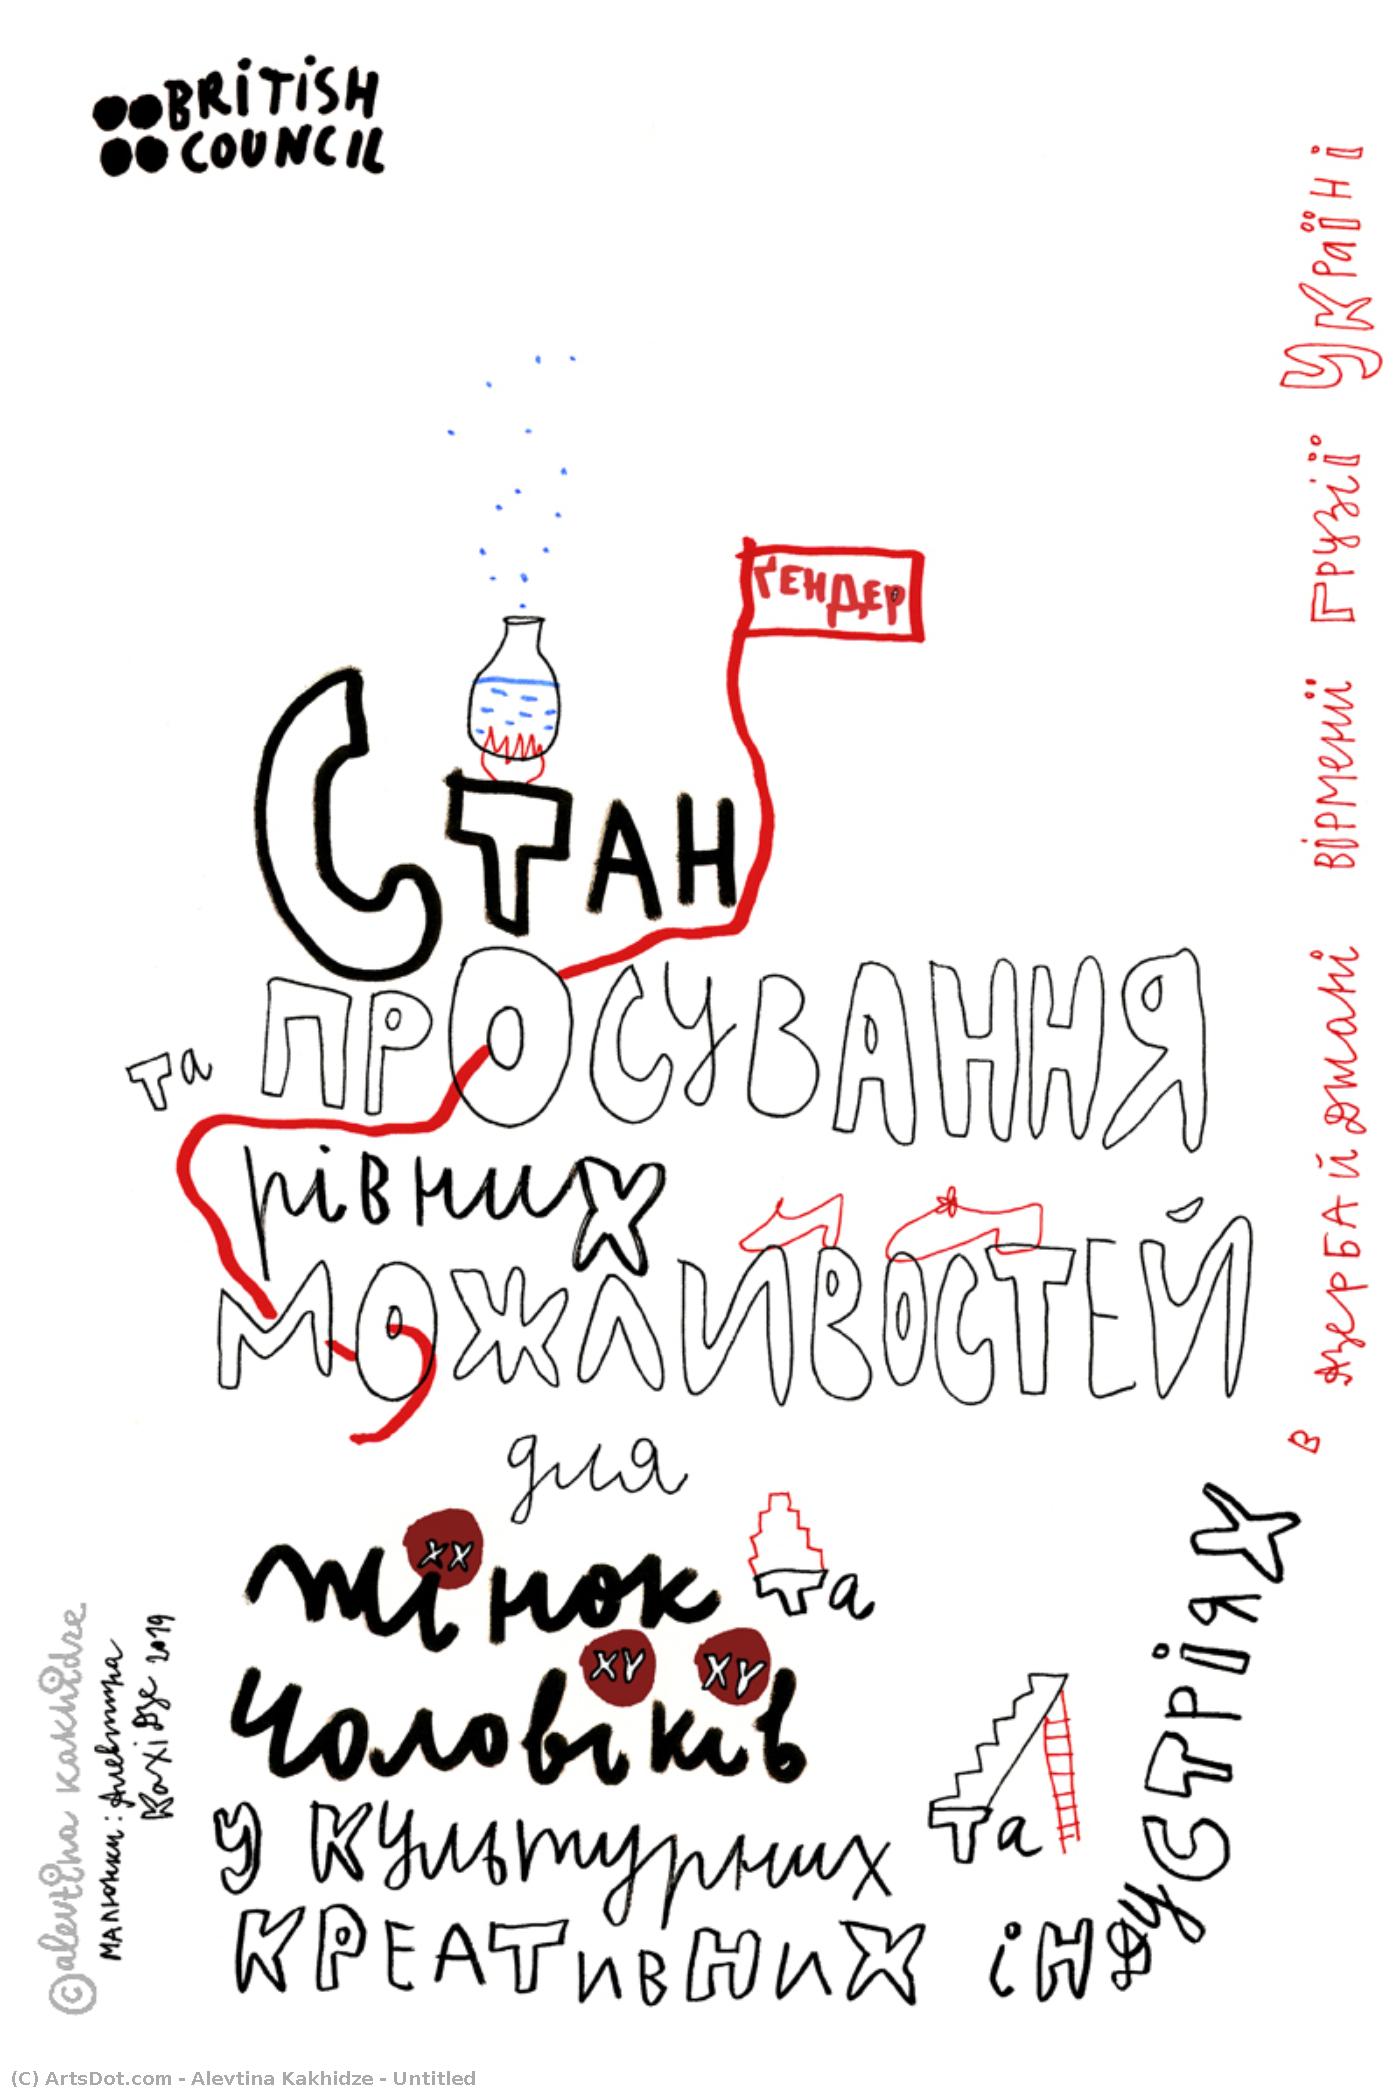 BRITISH
COUNCIL
ҐЕНДЕР
Стан
та ПРОСУВАННЯ
рівних
МОЖЛИВОСТЕЙ
для
жінок та
XX
чоловіків
XY XY
у культурних та
КРЕАТИВНИХ ІНДУСТРІЯХ
в АЗЕРБАЙДЖАНІ ВІРМЕНІЇ ГРУЗІЇ УКРАЇНІ
©alevtina kakhidze
МАЛЮНКИ: Алевтина
Кахідзе 2019
(C) ArtsDot.com - Alevtina Kakhidze - Untitled